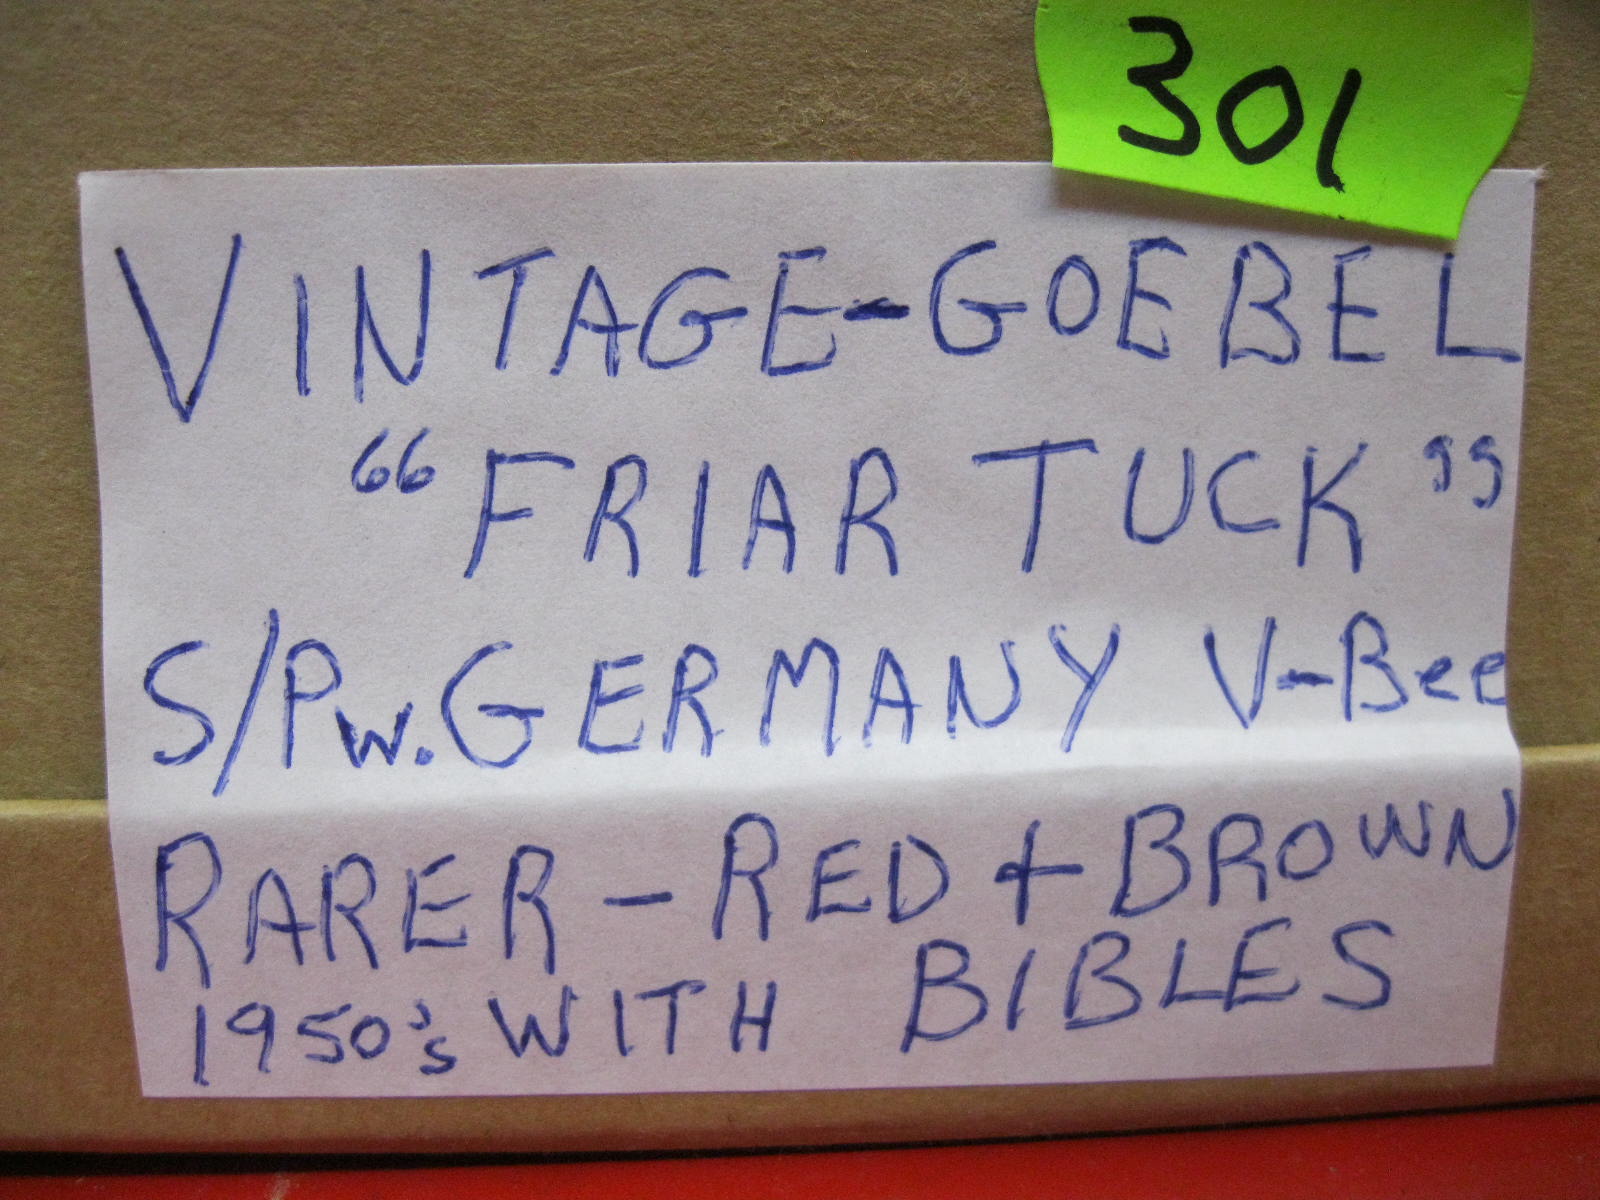 301
VINTAGE-GOEBEL
"FRIAR TUCK"
S/PW. GERMANY V-Bee
RARER - RED + BROWN
1950's WITH BIBLES